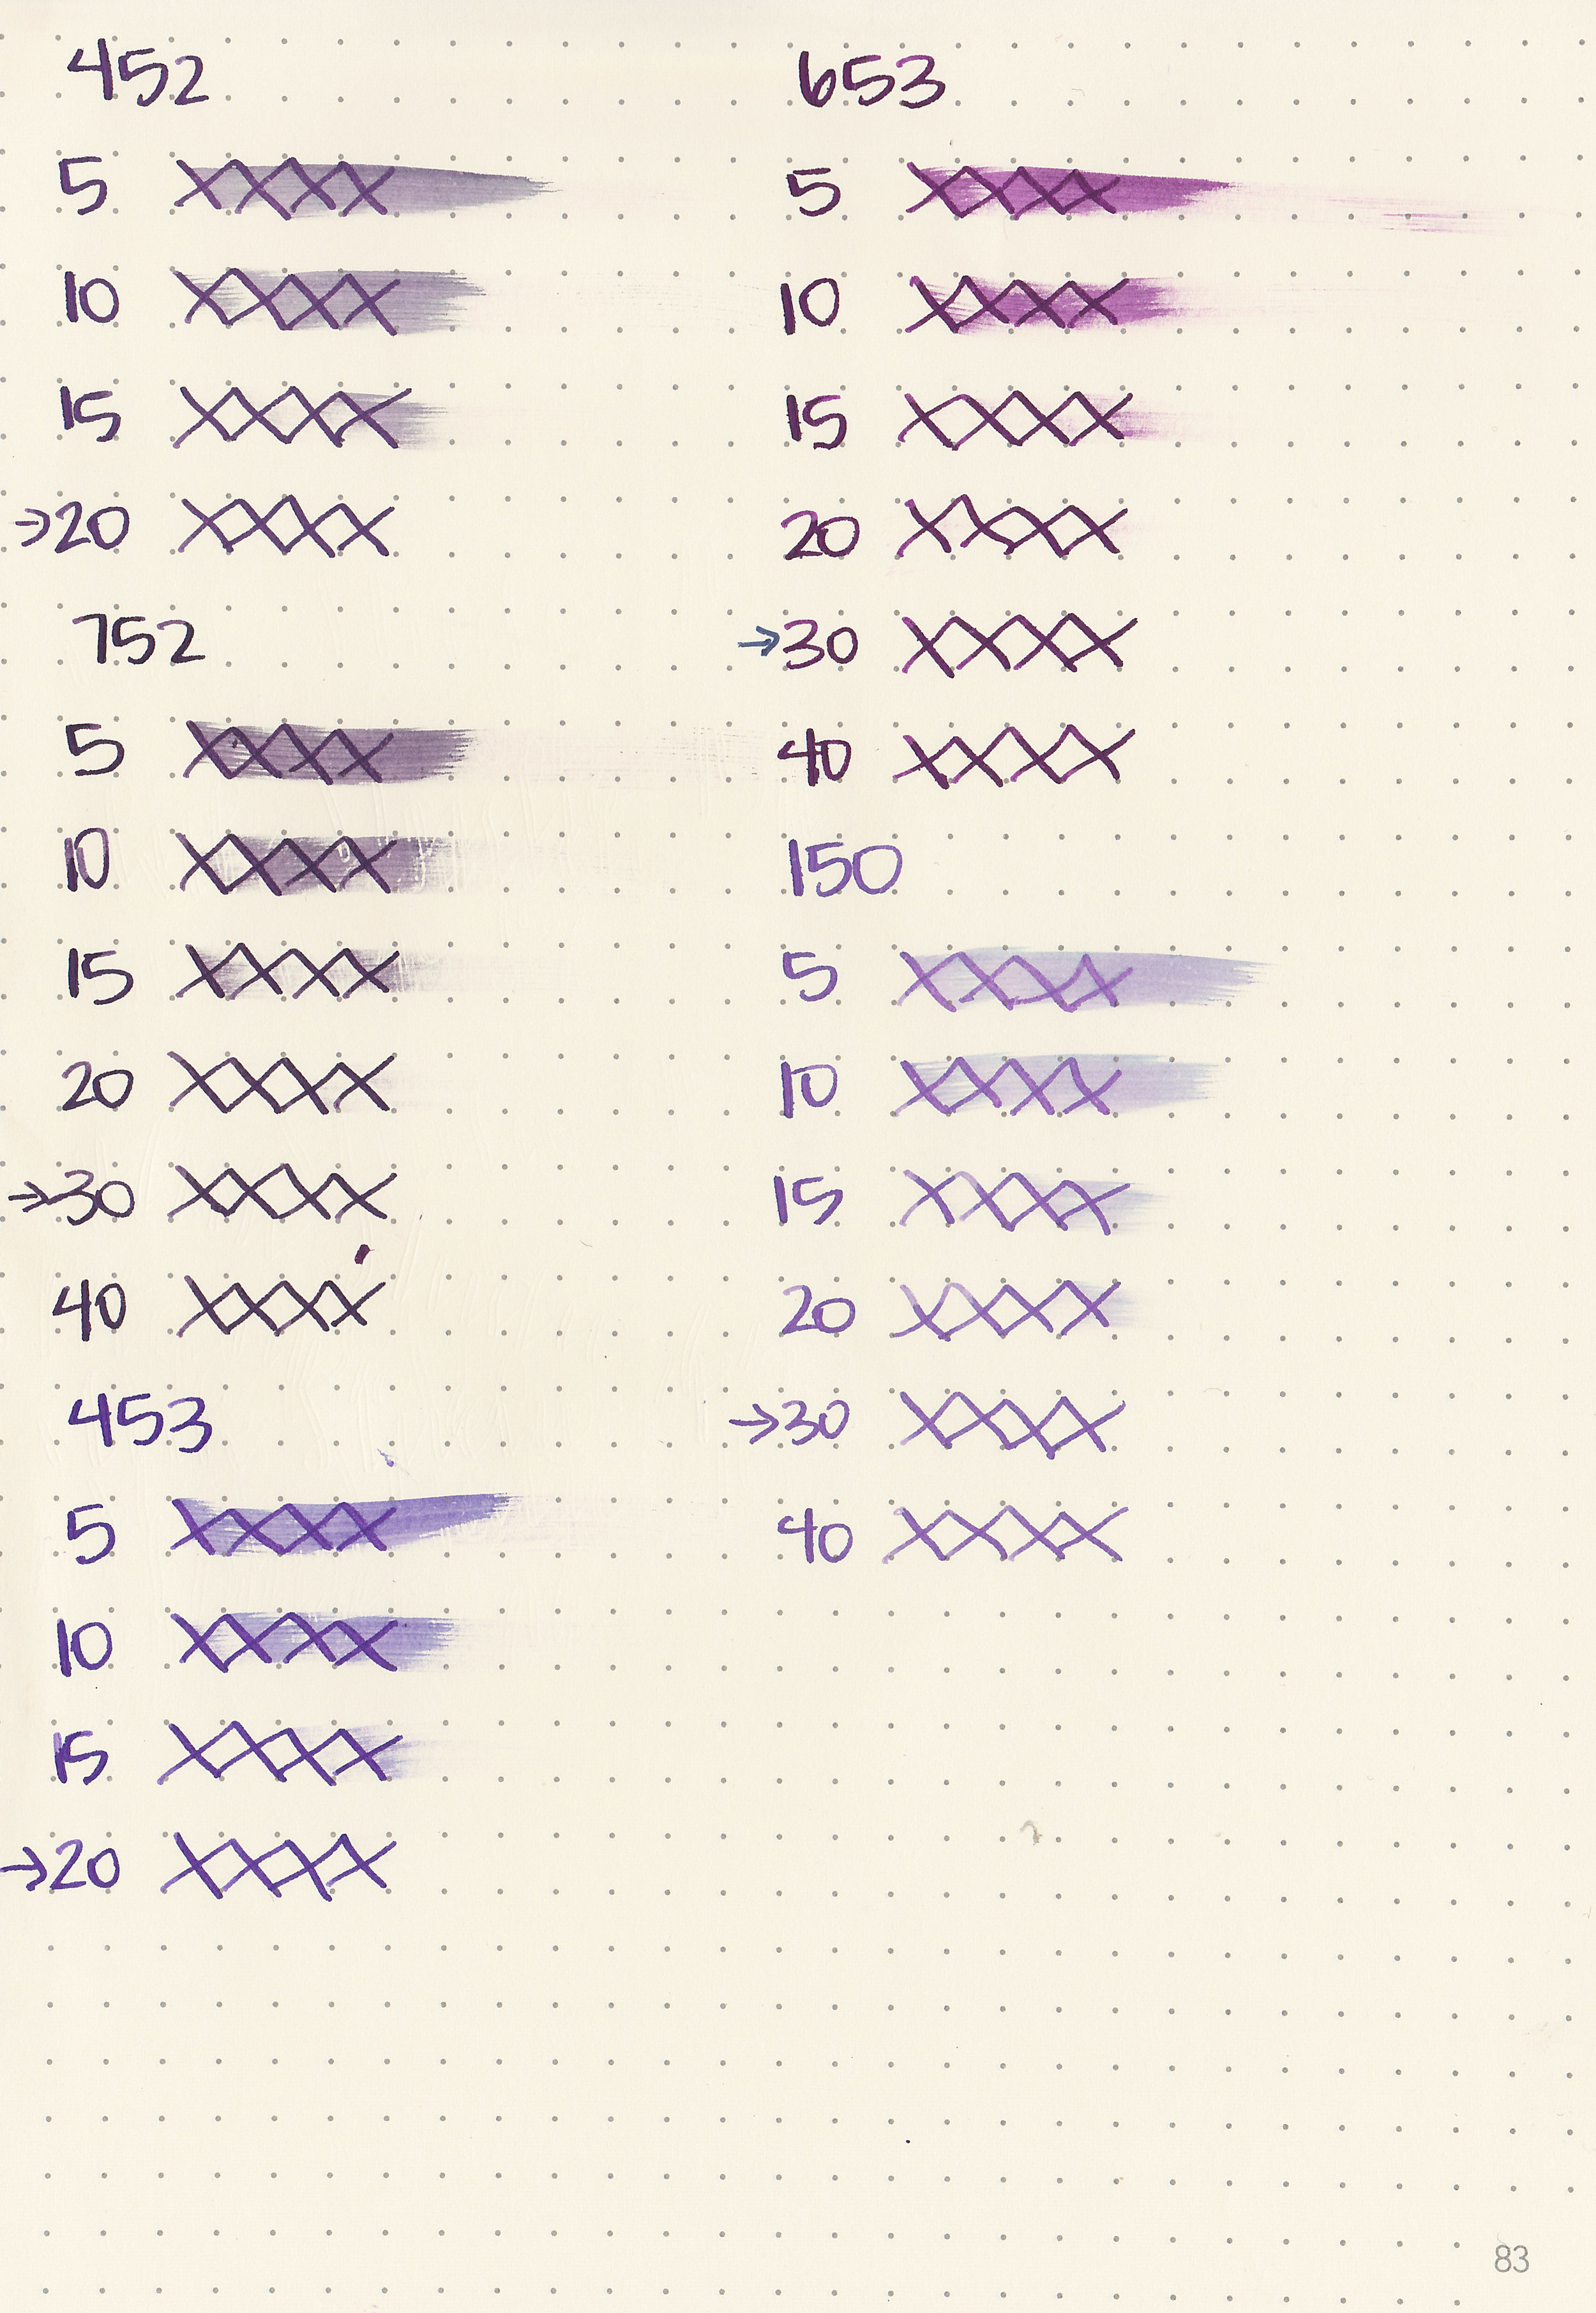 452
5 XXXX
10 XXXX
15 XXXX
→20 XXXX
752
5 XXXX
10 XXXX
15 XXXX
20 XXXX
→30 XXXX
40 XXXX
453
5 XXXX
10 XXXX
15 XXXX
→20 XXXX
653
5 XXXX
10 XXXX
15 XXXX
20 XXXX
→30 XXXX
40 XXXX
150
5 XXXX
10 XXXX
15 XXXX
20 XXXX
→30 XXXX
40 XXXX
83